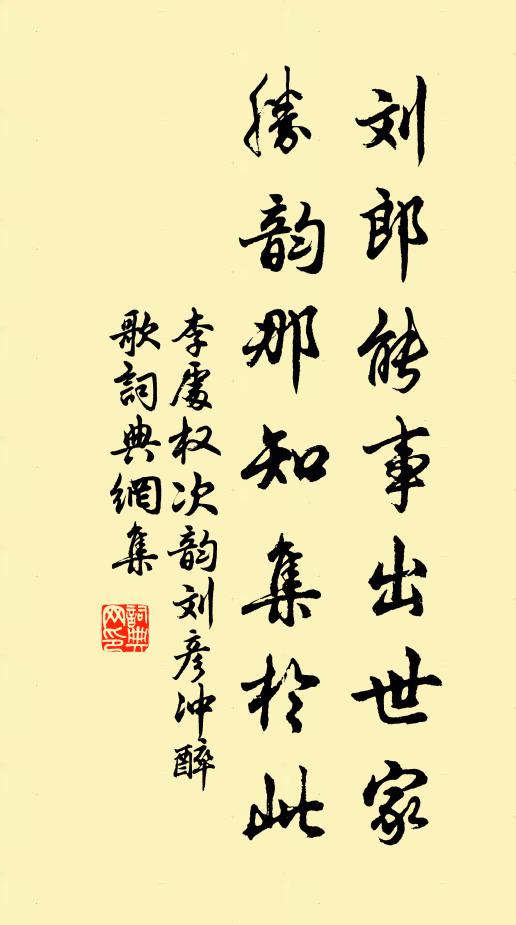 刘郎能事出世家
胜韵那知集於此
李处权次韵刘彦冲醉
歌词典網集
詞典网印